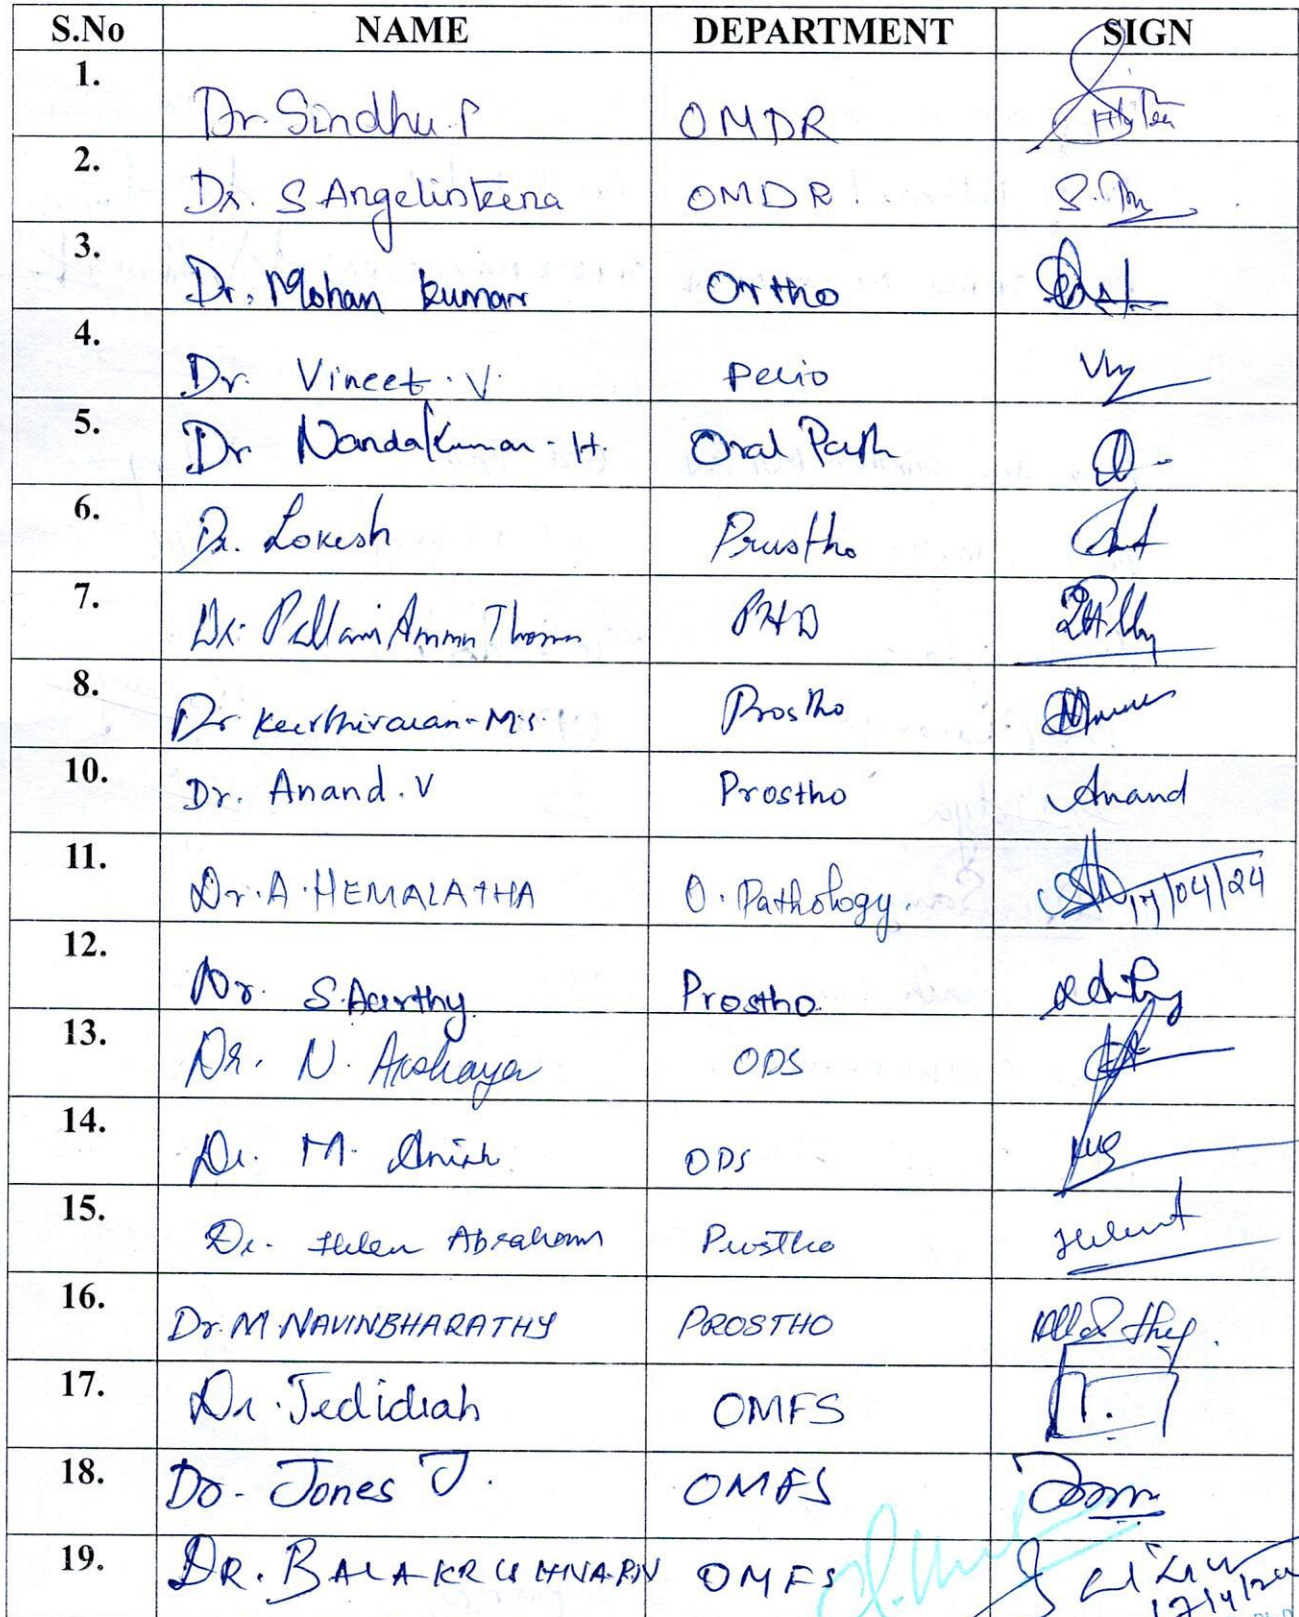 S.No NAME DEPARTMENT SIGN
1. Dr. Sindhu. P OMDR
2. Dr. S Angelinsteena OMDR
3. Dr. Mohan kumar Ortho
4. Dr. Vineet. V. Perio
5. Dr Nandakumar - H. Oral Path
6. Dr. Lokesh Prostho
7. Dr. Pallavi Ammu Thomas PHD
8. Dr. Keerthivasan - M.S. Prostho
10. Dr. Anand. V Prostho Anand
11. Dr. A. HEMALATHA O. Pathology. 17/04/24
12. Dr. S. Aarthy. Prostho
13. Dr. N. Akshaya ODS
14. Dr. M. Anish ODS
15. Dr. Helen Abraham Prostho
16. Dr. M NAVINBHARATHY PROSTHO
17. Dr. Jedidiah OMFS
18. Dr. Jones J. OMFS
19. DR. BALAKRISHNAN OMFS